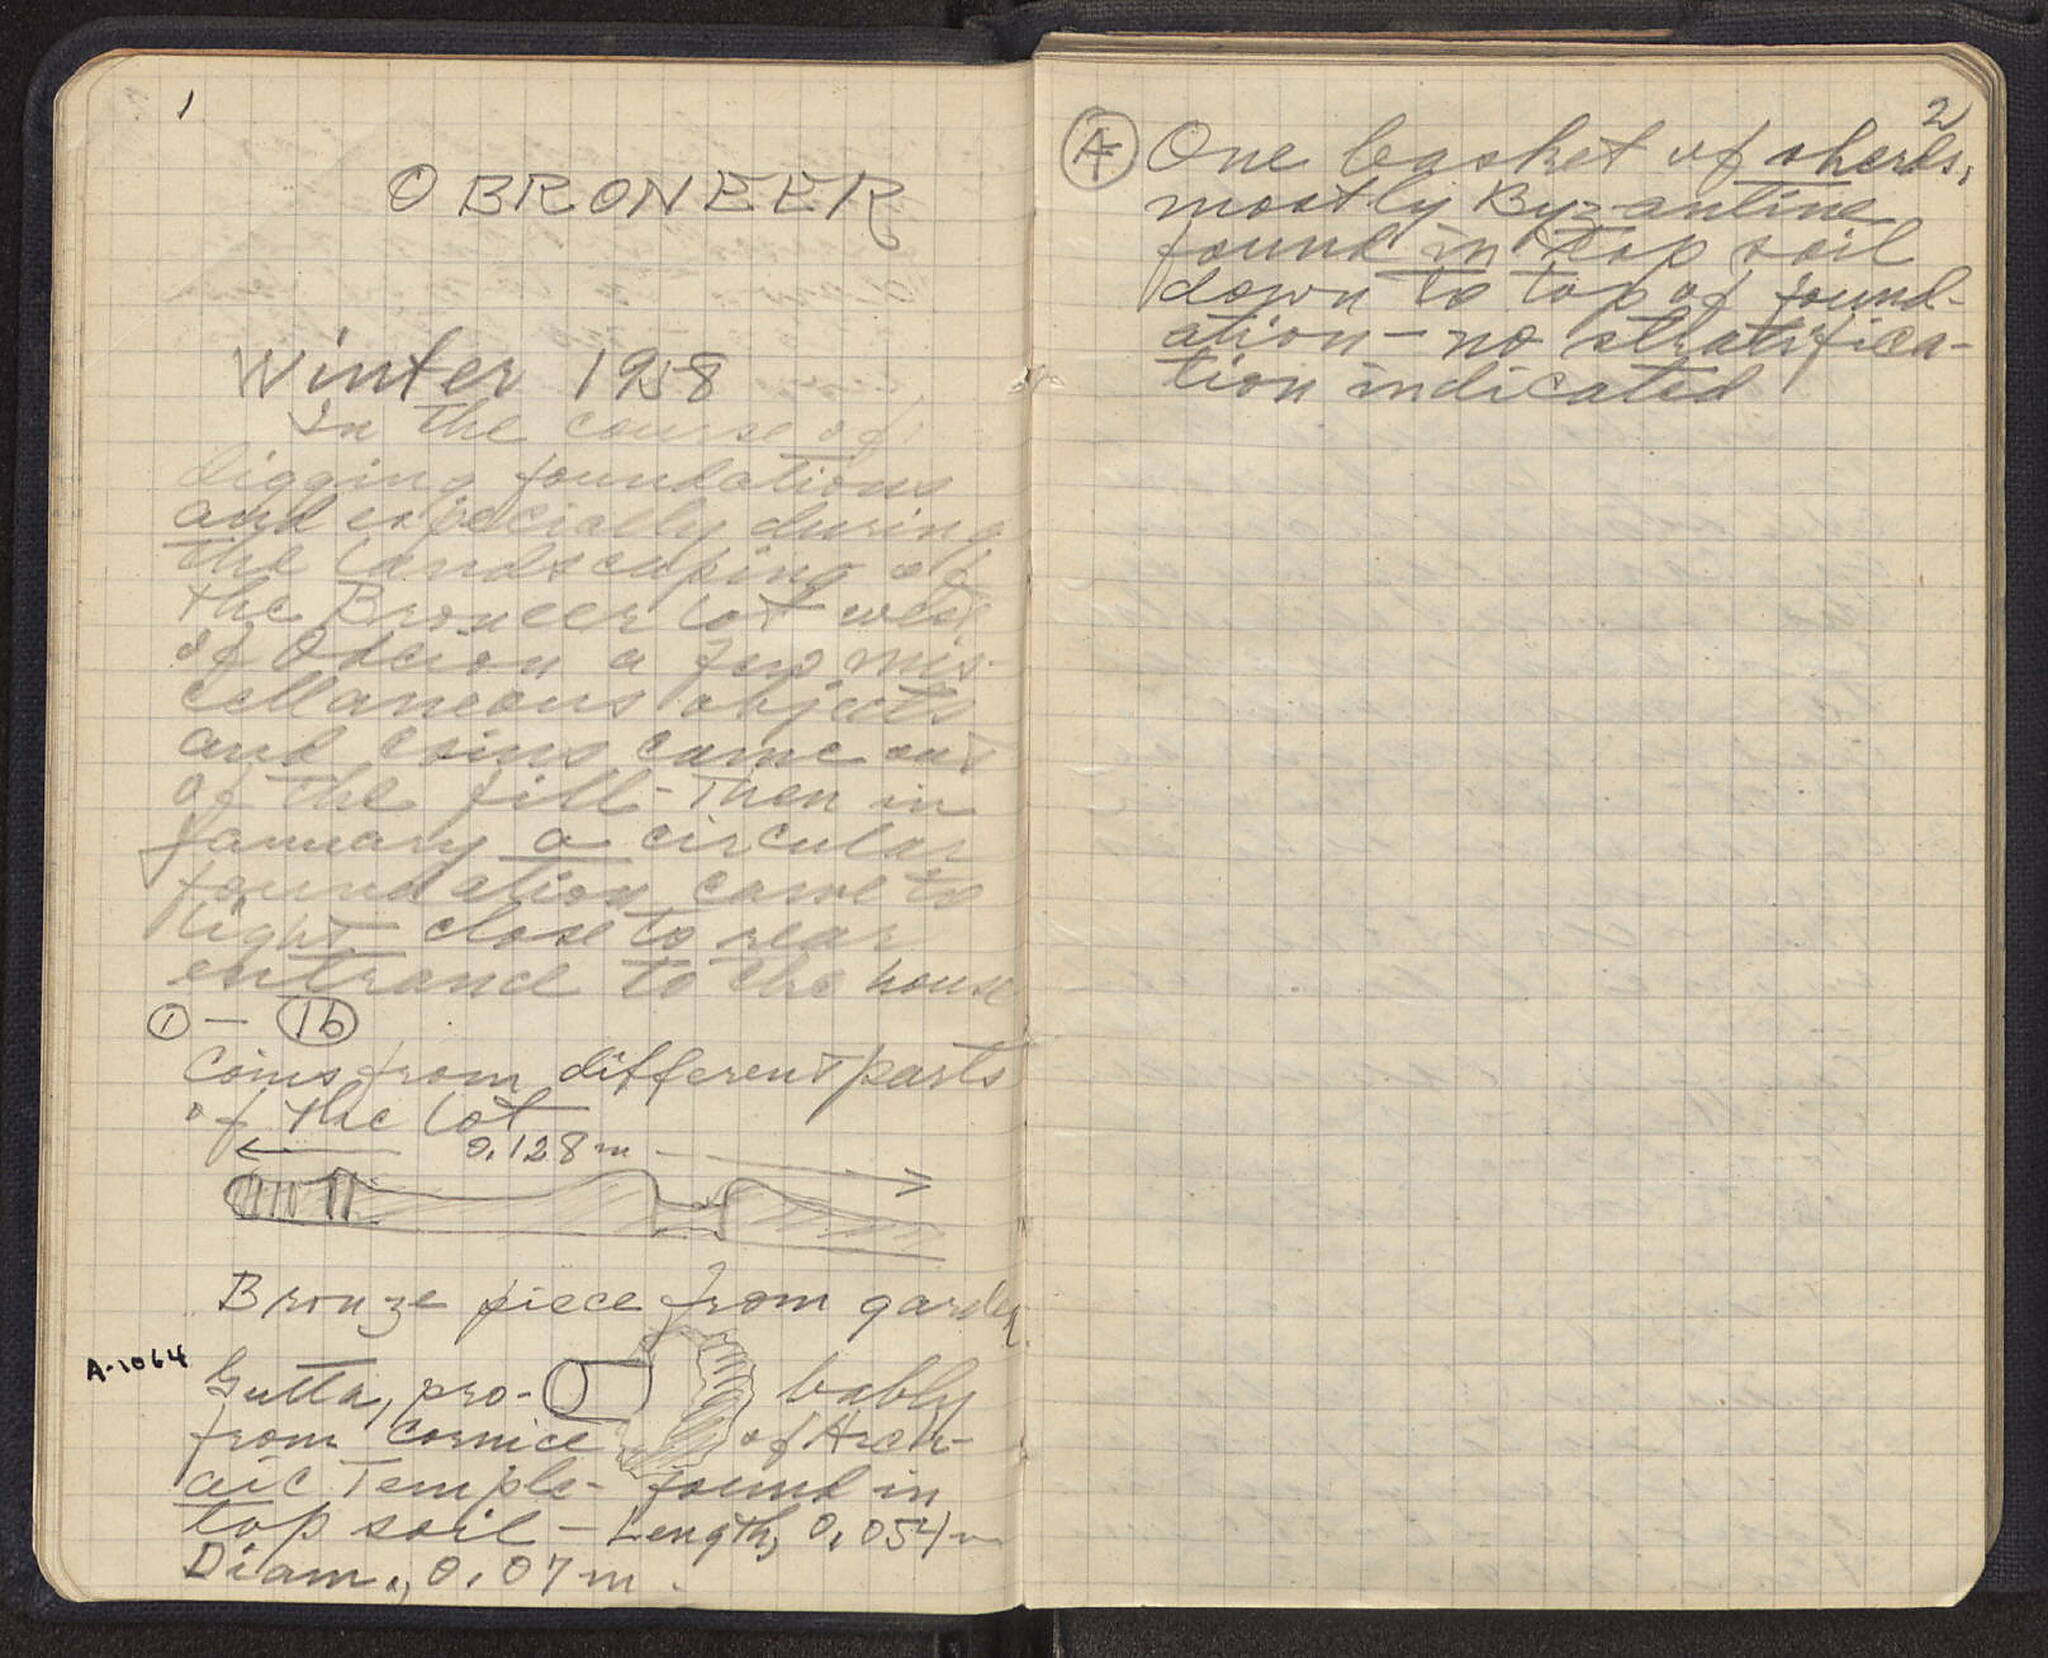 1
O BRONEER
Winter 1958
In the course of
digging foundations
and especially during
the landscaping of
the Broneer lot west
of Odeion a few mis-
cellaneous objects
and coins came out
of the fill - Then in
January a circular
foundation came to
light close to rear
entrance to the house
1 — 16
Coins from different parts
of the lot
0.128 m
Bronze piece from garden.
A-1064
Gutta, pro- bably
from cornice of Arch-
aic Temple - found in
top soil - Length, 0,054 m
Diam., 0.07 m.
2
A One basket of sherds,
mostly Byzantine
found in top soil
down to top of found-
ation - no stratifica-
tion indicated